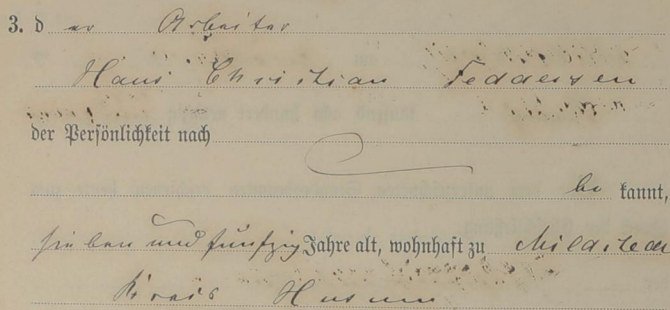 3. d er Arbeiter
Hans Christian Feddersen
der Persönlichkeit nach
be kannt,
sieben und fünfzig Jahre alt, wohnhaft zu Mildstedt
Kreis Husum